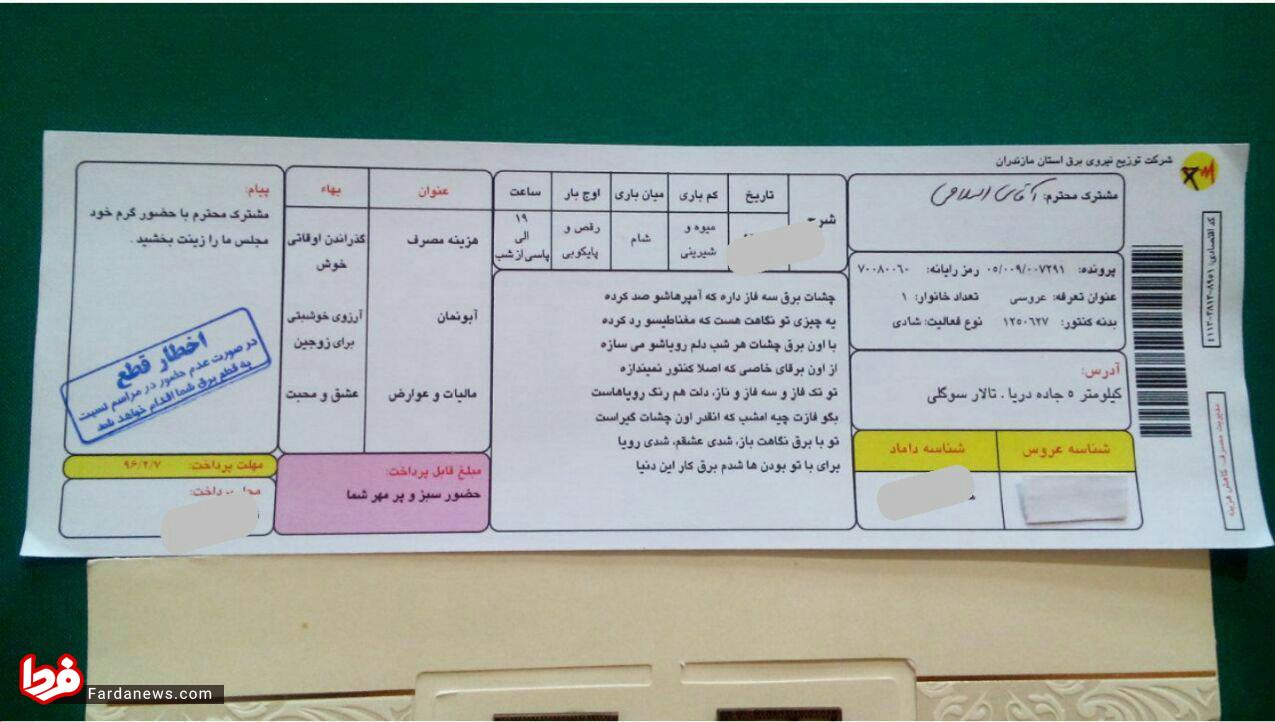 شرکت توزیع نیروی برق استان مازندران
مشترک محترم: آقای اسلامی
پرونده: ۰۵/۰۰۹/۰۰۷۲۹۱ رمز رایانه: ۷۰۰۸۰۰۶۰
عنوان تعرفه: عروسی تعداد خانوار: ۱
بدنه کنتور: ۱۲۵۰۶۲۷ نوع فعالیت: شادی
آدرس:
کیلومتر ۵ جاده دریا . تالار سوگلی
شناسه عروس
شناسه داماد
کد اقتصادی: ۸۹۵۱-۳۸۱۳-۴۱۱۳
مدیریت مصرف، کاهش هزینه
شرح
تاریخ
کم باری
میان باری
اوج بار
ساعت
میوه و
شیرینی
شام
رقص و
پایکوبی
۱۹
الی
پاسی از شب
چشات برق سه فاز داره که آمپرهاشو صد کرده
یه چیزی تو نگاهت هست که مغناطیسو رد کرده
با اون برق چشات هر شب دلم رویاشو می سازه
از اون برقای خاصی که اصلا کنتور نمیندازه
تو تک فاز و سه فاز و ناز، دلت هم رنگ رویاهاست
بگو فازت چیه امشب که انقدر اون چشات گیراست
تو با برق نگاهت باز، شدی عشقم، شدی رویا
برای با تو بودن ها شدم برق کار این دنیا
عنوان
بهاء
هزینه مصرف
گذراندن اوقاتی
خوش
آبونمان
آرزوی خوشبتی
برای زوجین
مالیات و عوارض
عشق و محبت
مبلغ قابل پرداخت:
حضور سبز و پر مهر شما
پیام:
مشترک محترم با حضور گرم خود
مجلس ما را زینت بخشید .
اخطار قطع
در صورت عدم حضور در مراسم نسبت
به قطع برق شما اقدام خواهد شد
مهلت پرداخت: ۹۶/۲/۷
محل پرداخت:
فردا
Fardanews.com